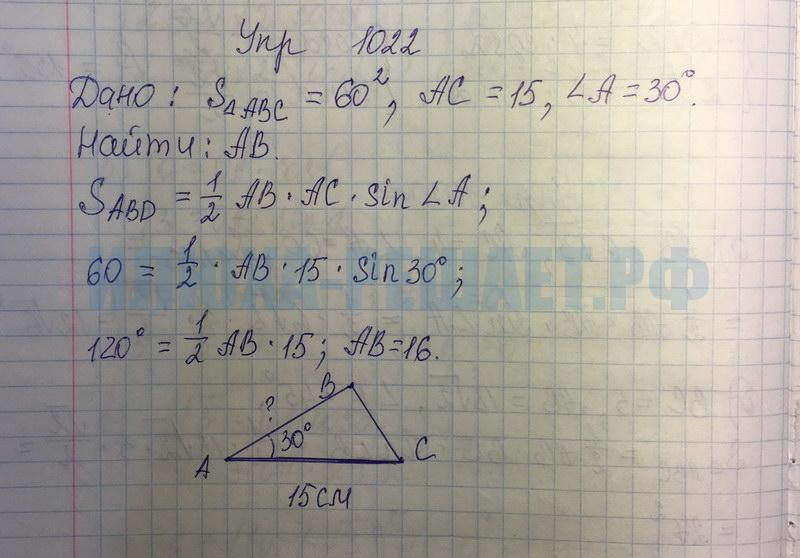 Упр 1022
Дано: S△ABC = 60², AC = 15, ∠A = 30°.
Найти: AB.
SABD = 1/2 AB · AC · sin ∠A;
60 = 1/2 · AB · 15 · sin 30°;
120° = 1/2 AB · 15; AB = 16.
B
?
30°
A
C
15 см